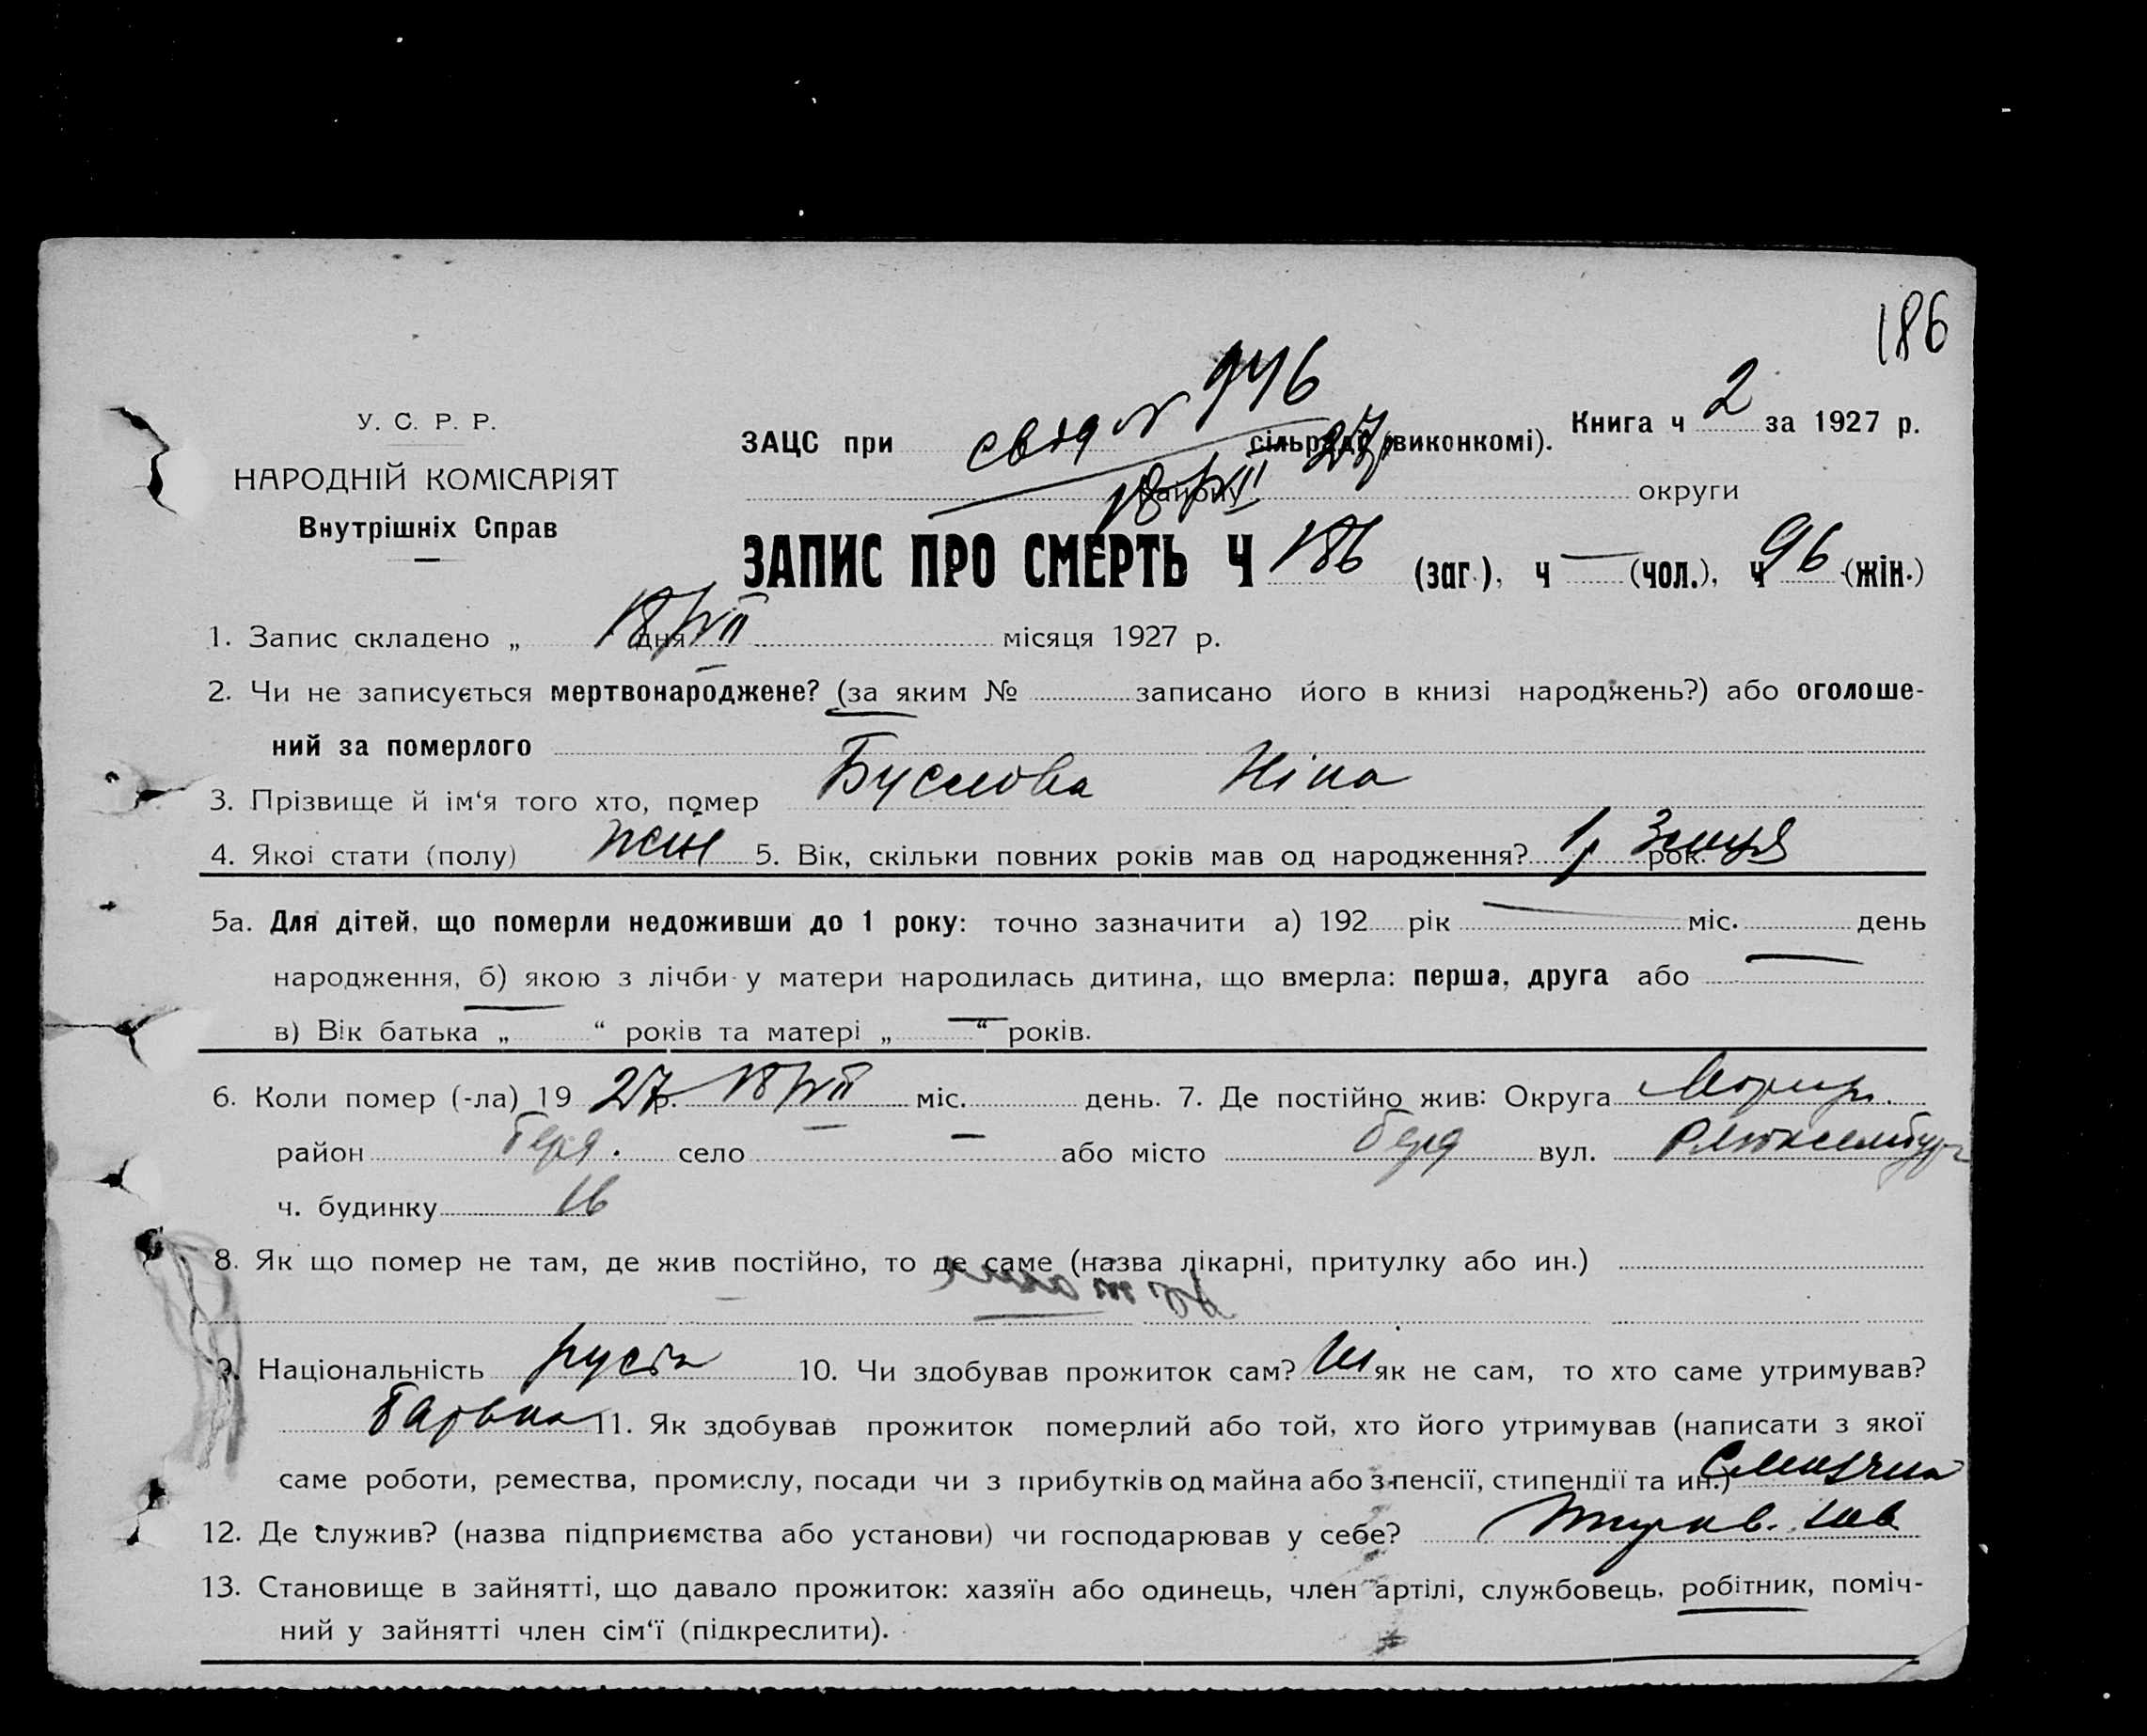 186
У. С. Р. Р.
НАРОДНІЙ КОМІСАРІЯТ
Внутрішніх Справ
Книга ч 2 за 1927 р.
946
ЗАЦС при сільраді (виконкомі).
27р
18/VII району округи
ЗАПИС ПРО СМЕРТЬ Ч 186 (заг.), ч — (чол.), ч 96 (жін.)
1. Запис складено „ 18/VII дня місяця 1927 р.
2. Чи не записується мертвонароджене? (за яким № записано його в книзі народжень?) або оголоше-
ний за померлого
3. Прізвище й ім‘я того хто, помер Буслова Ніна
4. Якої стати (полу) жін 5. Вік, скільки повних років мав од народження? 1 р рок.
5а. Для дітей, що померли недоживши до 1 року: точно зазначити а) 192 рік — міс. день
народження, б) якою з лічби у матери народилась дитина, що вмерла: перша, друга або —
в) Вік батька „ — “ років та матері „ — “ років.
6. Коли помер (-ла) 19 27 р. 18/VII міс. день. 7. Де постійно жив: Округа
район Берд. село — або місто Берд вул. Р Люксембург
ч. будинку 16
8. Як що помер не там, де жив постійно, то де саме (назва лікарні, притулку або ин.)
9. Національність русін 10. Чи здобував прожиток сам? Ні як не сам, то хто саме утримував?
батько 11. Як здобував прожиток померлий або той, хто його утримував (написати з якої
саме роботи, ремества, промислу, посади чи з прибутків од майна або з пенсії, стипендії та ин.)
12. Де служив? (назва підприємства або установи) чи господарював у себе?
13. Становище в зайнятті, що давало прожиток: хазяїн або одинець, член артілі, службовець, робітник, поміч-
ний у зайнятті член сім‘ї (підкреслити).